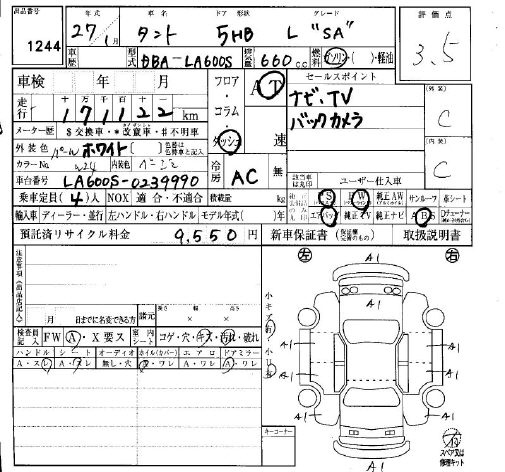 出品番号
1244
年式
27年1月
車名
タント
ドア 形状
5HB
グレード
L "SA"
評価点
3.5
車歴
型式
DBA-LA600S
排気量
660cc
燃料
ガソリン・( )・軽油
車検 年 月
フロア・コラム・ダッシュ
AT
速
セールスポイント
ナビ、TV
バックカメラ
(外装)
C
(内装)
C
走行
十万千百十一
171122km
メーター歴
$交換車・*改竄車・#不明車
外装色
パールホワイト
カラーNo.
W24
内装色
ベージュ
車台番号
LA600S-0239990
冷房
AC
無
ユーザー仕入車
乗車定員(4)人
NOX 適合・不適合
PS
PW
純正AW
サンルーフ
革シート
輸入車
ディーラー・並行
左ハンドル・右ハンドル
モデル年式( )年
エアバッグ
純正TV
純正ナビ
ABS
預託済リサイクル料金
9,550円
新車保証書
取扱説明書
注意事項(出品店記入)
月 日までに名変できる方
諸元
長さ
幅
高さ
検査員記入
FW
A・X要ス
車内シート
コゲ・穴・キズ・汚れ・破れ
ハンドル
シート
オーディオ
ホイル(カバー)
エアロ
ドアミラー
A・スレ
A・スレ
無し・穴
A・ワレ
A・ワレ
A・ワレ
左
右
A1
A1
A1
A1
A1
A1
A1
A1
キーコーナー
スペア又は
修理キット